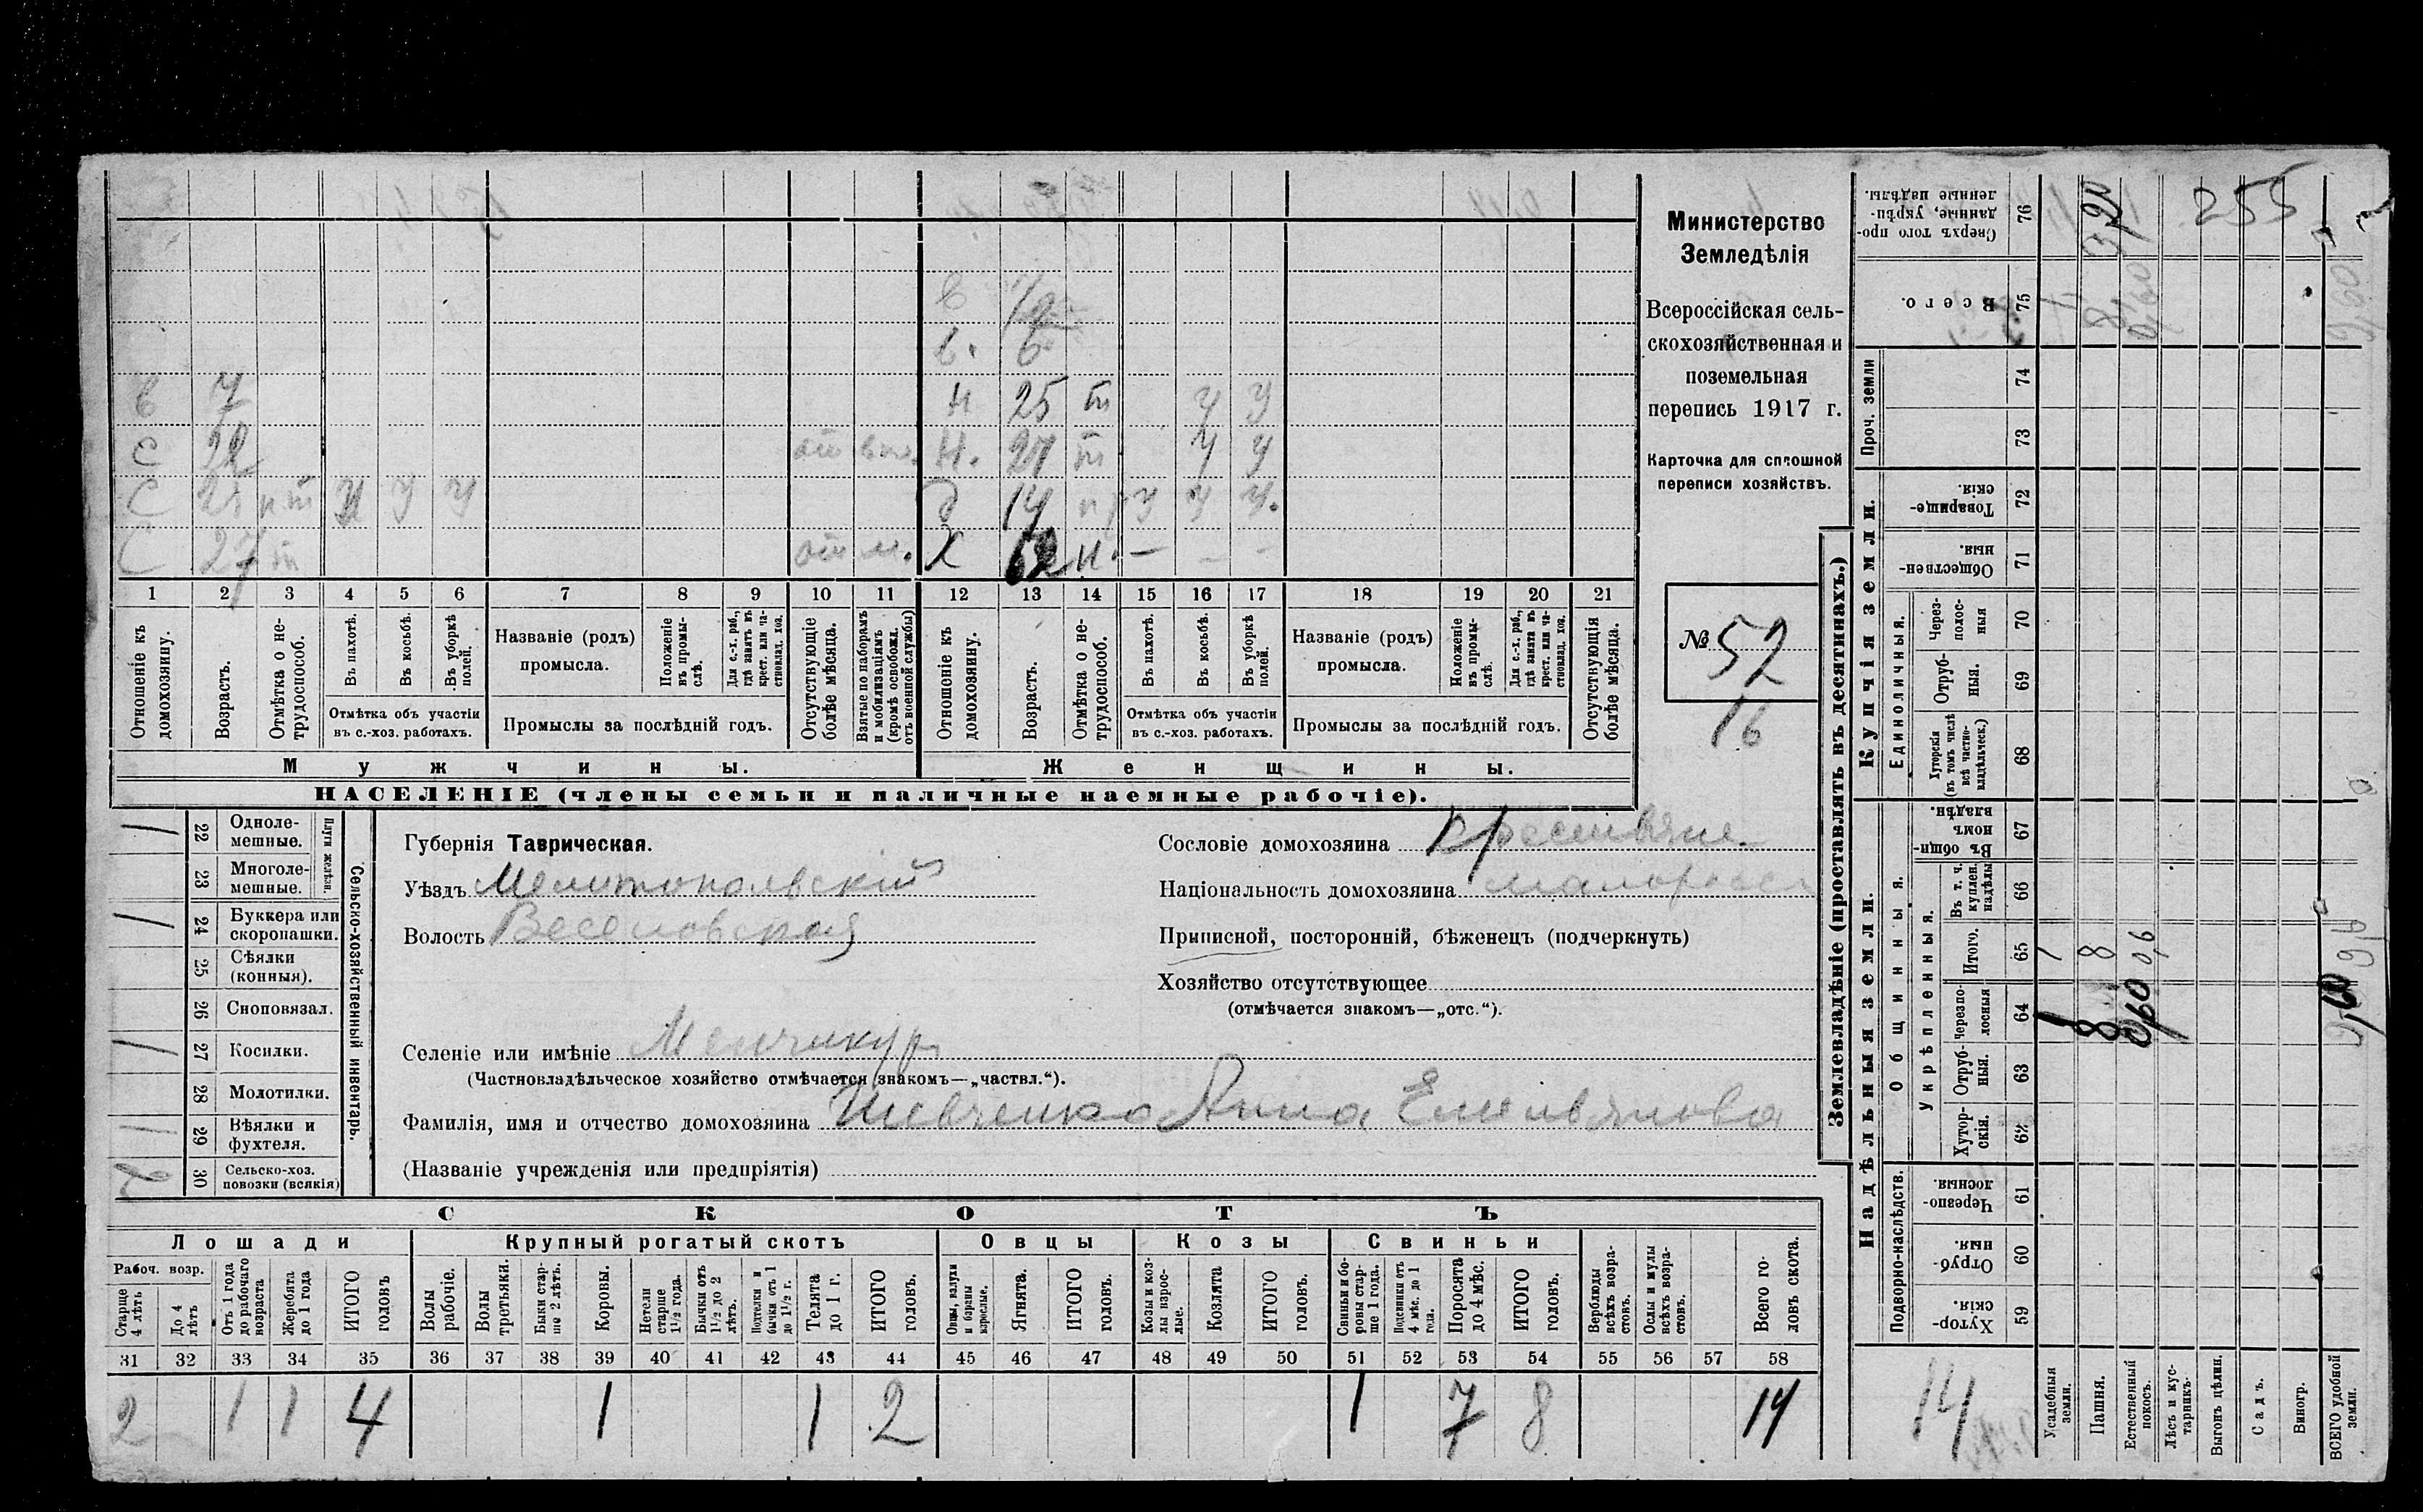 Министерство
Земледѣлія
Всероссійская сель-
скохозяйственная и
поземельная
перепись 1917 г.
Карточка для сплошной
переписи хозяйствъ.
№ 52
16
в 7
с 22
с
С 27 т
в
в. 6
н 25 т у у
н. 27 т у у
д 14 у у у.
Х 62 н. — — —
1 2 3 4 5 6 7 8 9 10 11 12 13 14 15 16 17 18 19 20 21
Отношеніе къ домохозяину.
Возрастъ.
Отмѣтка о не-трудоспособ.
Въ пахотѣ.
Въ косьбѣ.
Въ уборкѣ полей.
Отмѣтка объ участіи
въ с.-хоз. работахъ.
Названіе (родъ)
промысла.
Положеніе въ промы-слѣ.
Для с.-х. раб., гдѣ занятъ въ крест. или ча-стновлад. хоз.
Промыслы за послѣдній годъ.
Отсутствующіе болѣе мѣсяца.
Взятые по наборамъ и мобилизаціямъ (кромѣ освобожд. отъ военной службы)
Отношеніе къ домохозяину.
Возрастъ.
Отмѣтка о не-трудоспособ.
Въ пахотѣ.
Въ косьбѣ.
Въ уборкѣ полей.
Отмѣтка объ участіи
въ с.-хоз. работахъ.
Названіе (родъ)
промысла.
Положеніе въ промы-слѣ.
Для с.-х. раб., гдѣ занята въ крест. или ча-стновлад. хоз.
Промыслы за послѣдній годъ.
Отсутствующія болѣе мѣсяца.
Мужчины.
Женщины.
НАСЕЛЕНІЕ (члены семьи и наличные наемные рабочіе).
Сельско-хозяйственный инвентарь.
Плуги желѣзн.
1 22 Одноле-мешные.
23 Многоле-мешные.
1 24 Буккера или скоропашки.
25 Сѣялки (конныя).
26 Сноповязал.
1 27 Косилки.
28 Молотилки.
1 29 Вѣялки и фухтеля.
2 30 Сельско-хоз. повозки (всякія)
Губернія Таврическая.
Уѣздъ Мелитопольскій
Волость Веселовская
Селеніе или имѣніе Менчикур
(Частновладѣльческое хозяйство отмѣчается знакомъ—„частвл.“).
Фамилія, имя и отчество домохозяина Шевченко Анна Емельянова
(Названіе учрежденія или предпріятія)
Сословіе домохозяина крестьяне.
Національность домохозяина малоросс
Приписной, посторонній, бѣженец (подчеркнуть)
Хозяйство отсутствующее
(отмѣчается знакомъ—„отс.“).
СКОТЪ
Лошади
Крупный рогатый скотъ
Овцы
Козы
Свиньи
Рабоч. возр.
Старше 4 лѣтъ
До 4 лѣтъ
Отъ 1 года до рабочаго возраста
Жеребята до 1 года
ИТОГО головъ
Волы рабочіе.
Волы третьяки.
Быки стар-ше 2 лѣтъ.
Коровы.
Нетели старше 1½ года.
Бычки отъ 1½ до 2 лѣтъ.
Подтелки и бычки отъ 1 до 1½ г.
Телята до 1 г.
ИТОГО головъ.
Овцы, валухи и бараны взрослые.
Ягнята.
ИТОГО головъ.
Козы и коз-лы взрос-лые.
Козлята
ИТОГО головъ.
Свиньи и бо-ровы стар-ше 1 года.
Подсвинки отъ 4 мѣс. до 1 года.
Поросята до 4 мѣс.
ИТОГО головъ.
Верблюды всѣхъ возра-стовъ.
Ослы и мулы всѣхъ возра-стовъ.
Всего го-ловъ скота.
31 32 33 34 35 36 37 38 39 40 41 42 43 44 45 46 47 48 49 50 51 52 53 54 55 56 57 58
2 1 1 4 1 1 2 1 7 8 14
Землевладѣніе (проставлять въ десятинахъ.)
Надѣльныя земли.
Купчія земли.
Проч. земли
Подворно-наслѣдств.
Общинныя.
Укрѣпленныя.
Единоличныя.
Сверхъ того про-данные, укрѣп-ленные надѣлы. 76
Всего. 75
74
73
Товарище-скія. 72
Обществен-ныя. 71
Через-полос-ныя 70
Отруб-ныя. 69
Хуторскія (въ томъ числѣ всѣ частно-владѣльческ.) 68
Въ общин-номъ владѣн. 67
Въ т. ч. куплен. надѣлы 66
Итого. 65 1 8 0,6
Черезпо-лосныя 64 1 8 0,60
Отруб-ныя. 63
Хутор-скія. 62
Черезпо-лосныя. 61
Отруб-ныя. 60
Хутор-скія. 59
255
14
Усадебныя земли.
Пашня.
Естественный покосъ.
Лѣсъ и кус-тарникъ.
Выгонъ цѣлин.
Садъ.
Виногр.
ВСЕГО удобной земли.